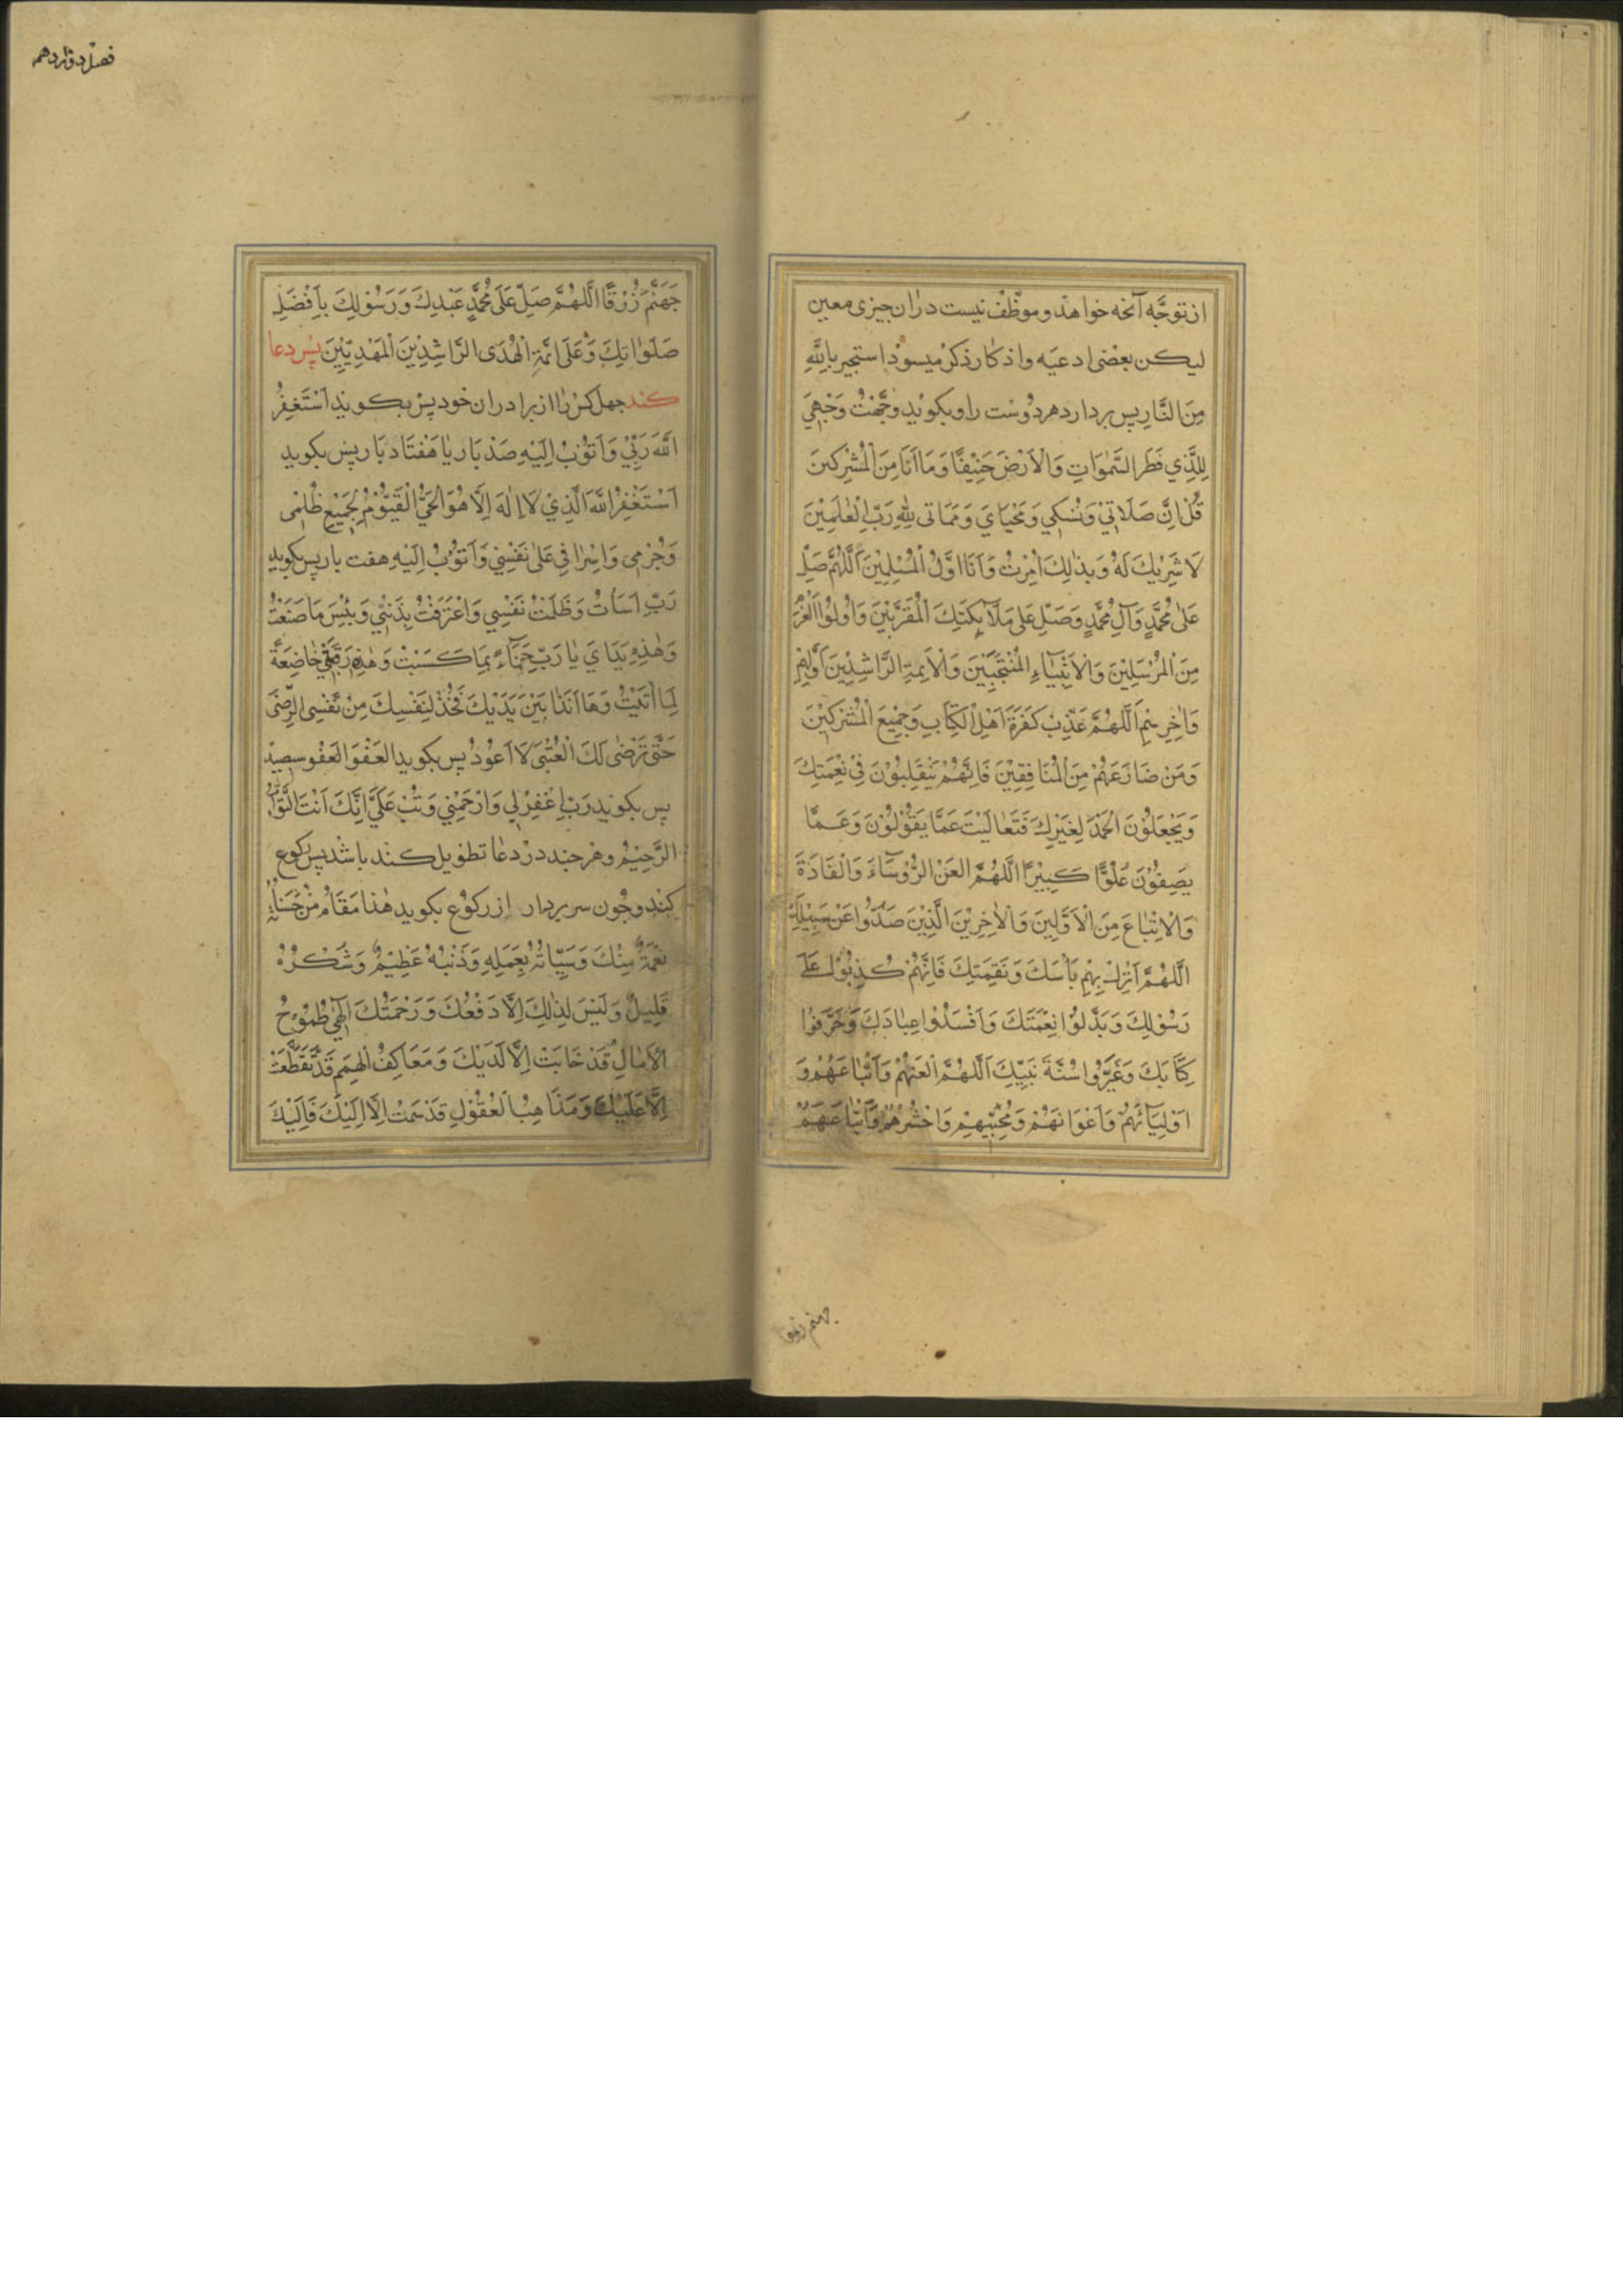 از توجّه آنچه خواهد و موظّف نیست در ان چیزی معین
لیکن بعضی ادعیه و اذکار ذکر میسود استجیر باللّهِ
مِنَ النَّارِ پس بردارد هر دوست را و بکوید وَجَّهْتُ وَجْهِيَ
لِلَّذِي فَطَرَ السَّمٰوَاتِ وَالْاَرْضَ حَنِيْفًا وَمَا اَنَا مِنَ الْمُشْرِكِينَ
قُلْ اِنَّ صَلَاتِيْ وَنُسُكِي وَمَحْيَايَ وَمَمَاتى لِلّٰهِ رَبِّ الْعٰلَمِيْنَ
لَا شَرِيْكَ لَهُ وَبِذٰلِكَ اُمِرْتُ وَاَنَا اوَّلُ الْمُسْلِمِيْنَ اَللّٰهُمَّ صَلِّ
عَلٰى مُحَمَّدٍ وَآلِ مُحَمَّدٍ وَصَلِّ عَلٰى مَلَآئِكَتِكَ الْمُقَرَّبِيْنَ وَاُولُوا الْعَزْمِ
مِنَ الْمُرْسَلِيْنَ وَالْاَنْبِيَاءِ الْمُنْتَجَبِيْنَ وَالْاَئِمَّةِ الرَّاشِدِيْنَ اَوَّلِهِمْ
وَاٰخِرِهِمْ اَللّٰهُمَّ عَذِّبْ كَفَرَةَ اَهْلِ الْكِتَابِ وَجَمِيْعَ الْمُشْرِكِيْنَ
وَمَنْ ضَارَعَهُمْ مِنَ الْمُنَافِقِيْنَ فَاِنَّهُمْ يَتَقَلَّبُوْنَ فِيْ نِعْمَتِكَ
وَيَجْعَلُوْنَ الْحَمْدَ لِغَيْرِكَ فَتَعَالَيْتَ عَمَّا يَقُوْلُوْنَ وَعَمَّا
يَصِفُوْنَ عُلُوًّا كَبِيْرًا اَللّٰهُمَّ الْعَنِ الرُّؤَسَاءَ وَالْقَادَةَ
وَالْاَتْبَاعَ مِنَ الْاَوَّلِينَ وَالْاٰخِرِيْنَ الَّذِيْنَ صَدُّوا عَنْ سَبِيْلِكَ
اَللّٰهُمَّ اَنْزِلْ بِهِمْ بَأْسَكَ وَنَقِمَتَكَ فَاِنَّهُمْ كَذَبُوْا عَلٰى
رَسُوْلِكَ وَبَدَّلُوْا نِعْمَتَكَ وَاَفْسَدُوْا عِبَادَكَ وَحَرَّفُوْا
كِتَابَكَ وَغَيَّرُوْا سُنَّةَ نَبِيِّكَ اَللّٰهُمَّ الْعَنْهُمْ وَاَتْبَاعَهُمْ وَ
اَوْلِيَآئَهُمْ وَاَعْوَانَهُمْ وَمُحِبِّيْهِمْ وَاحْشُرْهُمْ وَاَتْبَاعَهُمْ
جهنم زرقا
فصل دوازدهم
جَهَنَّمَ زُرْقًا اَللّٰهُمَّ صَلِّ عَلٰى مُحَمَّدٍ عَبْدِكَ وَرَسُوْلِكَ بِاَفْضَلِ
صَلَوٰاتِكَ وَعَلٰى ائمَّةِ الْهُدَى الرَّاشِدِيْنَ الْمَهْدِيِّيْنَ پس دعا
کند چهل کس را از برادران خود پس بکوید اَسْتَغْفِرُ
اللّٰهَ رَبِّيْ وَاَتُوْبُ اِلَيْهِ صد بار یا هفتاد بار پس بکوید
اَسْتَغْفِرُ اللّٰهَ الَّذِيْ لَا اِلٰهَ اِلَّا هُوَ الْحَيُّ الْقَيُّوْمُ لِجَمِيْعِ ظُلْمِى
وَجُرْمِى وَاِسْرَافِي عَلٰى نَفْسِيْ وَاَتُوْبُ اِلَيْهِ هفت بار پس بکوید
رَبِّ اَسَأْتُ وَظَلَمْتُ نَفْسِي وَاعْتَرَفْتُ بِذَنْبِيْ وَبِئْسَ مَا صَنَعْتُ
وَهٰذِهِ يَدَايَ يَا رَبِّ جَزَآءً بِمَا كَسَبَتْ وَهٰذِهِ رَقَبَتِيْ خَاضِعَةً
لِمَا اَتَيْتُ وَهَا اَنَا ذَا بَيْنَ يَدَيْكَ فَخُذْ لِنَفْسِكَ مِنْ نَفْسِي الرِّضٰى
حَتّٰى تَرْضٰى لَكَ الْعُتْبٰى لَا اَعُوْدُ پس بکوید العَفْوَ العَفْو سیصد
پس بکوید رَبِّ اغْفِرْ لِي وَارْحَمْنِي وَتُبْ عَلَيَّ اِنَّكَ اَنْتَ التَّوَّابُ
الرَّحِيْمُ و هر چند در دعا تطویل کند باشد پس رکوع
کند و چون سر بردارد از رکوع بکوید هٰذَا مَقَامُ مَنْ حَسَنَاتُهُ
نِعْمَةٌ مِنْكَ وَسَيِّئَاتُهُ بِعَمَلِهِ وَذَنْبُهُ عَظِيْمٌ وَشُكْرُهُ
قَلِيْلٌ وَلَيْسَ لِذٰلِكَ اِلَّا دَفْعُكَ وَرَحْمَتُكَ اِلٰهِيْ طُمُوْحُ
الْاٰمَالِ قَدْ خَابَتْ اِلَّا لَدَيْكَ وَمَعَاكِفُ الْهِمَمِ قَدْ تَقَطَّعَتْ
اِلَّا عَلَيْكَ وَمَذَاهِبُ الْعُقُوْلِ قَدْ سَمَتْ اِلَّا اِلَيْكَ فَاِلَيْكَ